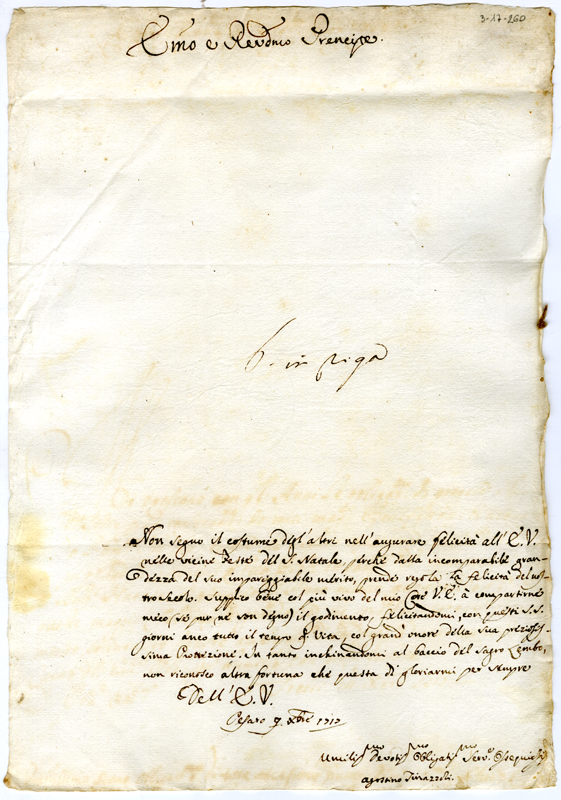 3-17-260
Emo e Revdmo Prencipe.
6. in riga
Non seguo il costume degl'altri nell'augurare felicità all'E.V.
nelle vicine Feste del S. Natale, perche dalla incomparabile gran-
dezza del suo impareggiabile mérito, prende regola la felicità del nos-
tro Secolo. Supplico bene col più vivo del mio Core V.E. à compartirne
meco (se pur ne son degno) il godimento, felicitandomi, con questi S.S.
giorni anco tutto il tempo di Vita, col grand'onore della Sua preziosis-
sima Protezione. In tanto inchinandomi al baccio del Sagro Lembo,
non riconosco altra fortuna che questa di gloriarmi per sempre
Dell'E.V.
Pesaro 9 Xbre 1717
Umilismo Devotismo Obligatismo Servo Ossequiosso
Agostino